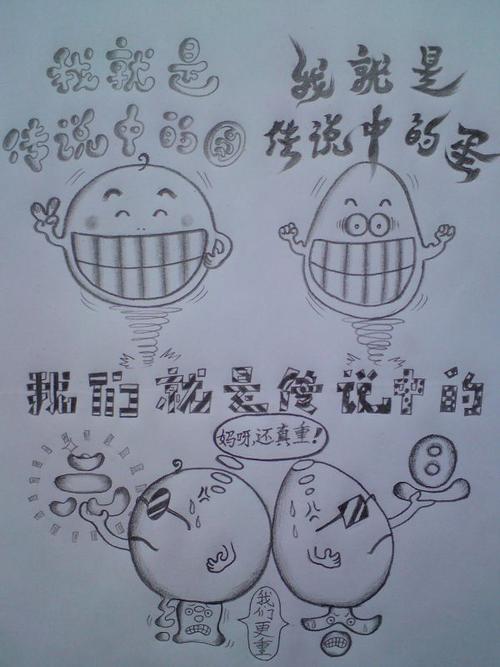 我就是
传说中的
我就是
传说中的蛋
我们就是传说中的
妈呀,还真重!
我们更重